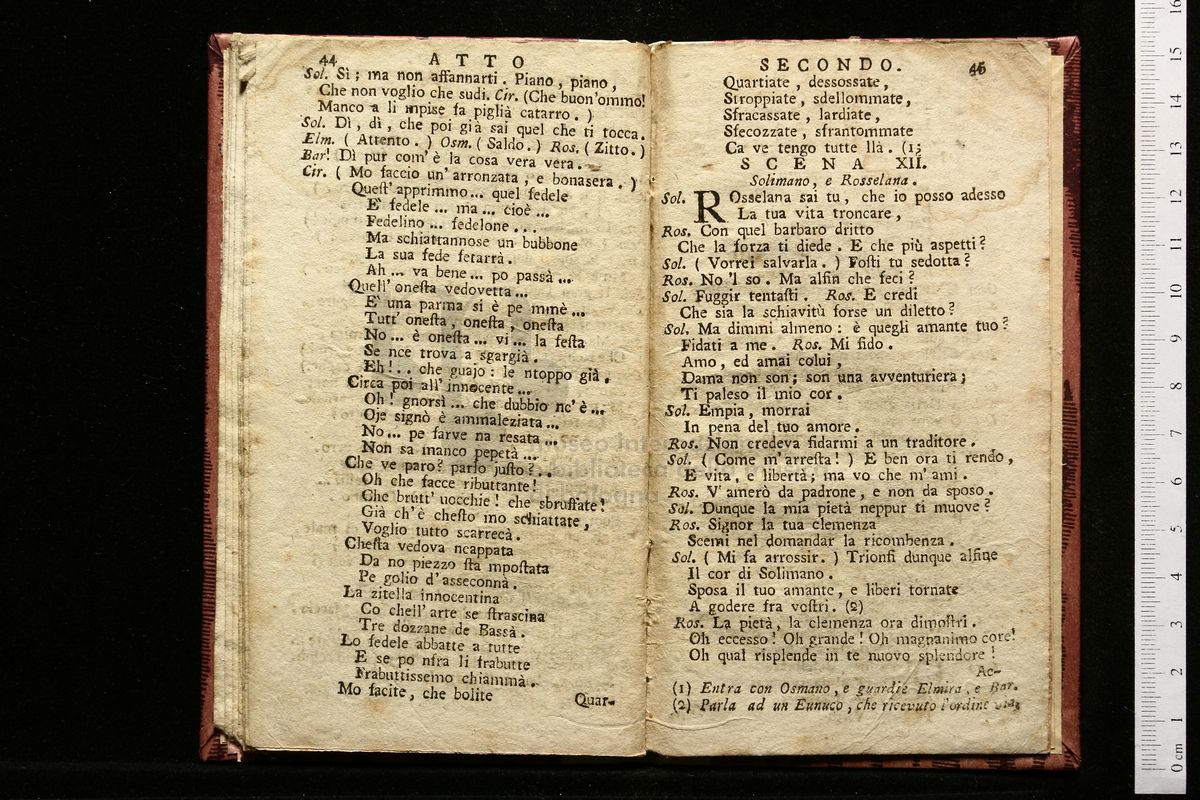 44 ATTO
Sol. Sì; ma non affannarti. Piano, piano,
Che non voglio che sudi. Cir. (Che buon'ommo!
Manco a li mpise fa piglià catarro.)
Sol. Dì, dì, che poi già sai quel che ti tocca.
Elm. (Attento.) Osm. (Saldo.) Ros. (Zitto.)
Bar! Dì pur com'è la cosa vera vera.
Cir. (Mo faccio un'arronzata, e bonasera.)
Quest'apprimmo... quel fedele
E' fedele... ma... cioè...
Fedelino... fedelone...
Ma schiattannose un bubbone
La sua fede fetarrà.
Ah... va bene... po passà...
Quell'onesta vedovetta...
E' una parma si è pe mmè...
Tutt'onesta, onesta, onesta
No... è onesta... vi... la festa
Se nce trova a sgargià.
Eh!.. che guajo: le ntoppo già.
Circa poi all'innocente...
Oh! gnorsì... che dubbio nc'è...
Oje signò è ammaleziata...
No... pe farve na resata...
Non sa manco pepetà...
Che ve paro? parlo justo?...
Oh che facce ributtante!
Che brutt'uocchie! che sbruffate!
Già ch'è chesto mo schiattate,
Voglio tutto scarrecà.
Chesta vedova ncappata
Da no piezzo sta mpostata
Pe golio d'asseconnà.
La zitella innocentina
Co chell'arte se strascina
Tre dozzane de Bassà.
Lo fedele abbatte a tutte
E se po nfra li frabutte
Frabuttissemo chiammà.
Mo facite, che bolite
Quar-
SECONDO. 45
Quartiate, dessossate,
Stroppiate, sdellommate,
Sfracassate, lardiate,
Sfecozzate, sfrantommate
Ca ve tengo tutte llà. (1;
SCENA XII.
Solimano, e Rosselana.
Sol. ROsselana sai tu, che io posso adesso
La tua vita troncare,
Ros. Con quel barbaro dritto
Che la forza ti diede. E che più aspetti?
Sol. (Vorrei salvarla.) Fosti tu sedotta?
Ros. No 'l so. Ma alfin che feci?
Sol. Fuggir tentasti. Ros. E credi
Che sia la schiavitù forse un diletto?
Sol. Ma dimmi almeno: è quegli amante tuo?
Fidati a me. Ros. Mi fido.
Amo, ed amai colui,
Dama non son; son una avventuriera;
Ti paleso il mio cor.
Sol. Empia, morrai
In pena del tuo amore.
Ros. Non credeva fidarmi a un traditore.
Sol. (Come m'arresta!) E ben ora ti rendo,
E vita, e libertà; ma vo che m'ami.
Ros. V'amerò da padrone, e non da sposo.
Sol. Dunque la mia pietà neppur ti muove?
Ros. Signor la tua clemenza
Scemi nel domandar la ricombenza.
Sol. (Mi fa arrossir.) Trionfi dunque alfine
Il cor di Solimano.
Sposa il tuo amante, e liberi tornate
A godere fra vostri. (2)
Ros. La pietà, la clemenza ora dimostri.
Oh eccesso! Oh grande! Oh magnanimo core!
Oh qual risplende in te nuovo splendore!
Ac-
(1) Entra con Osmano, e guardie Elmira, e Bar.
(2) Parla ad un Eunuco, che ricevuto l'ordine